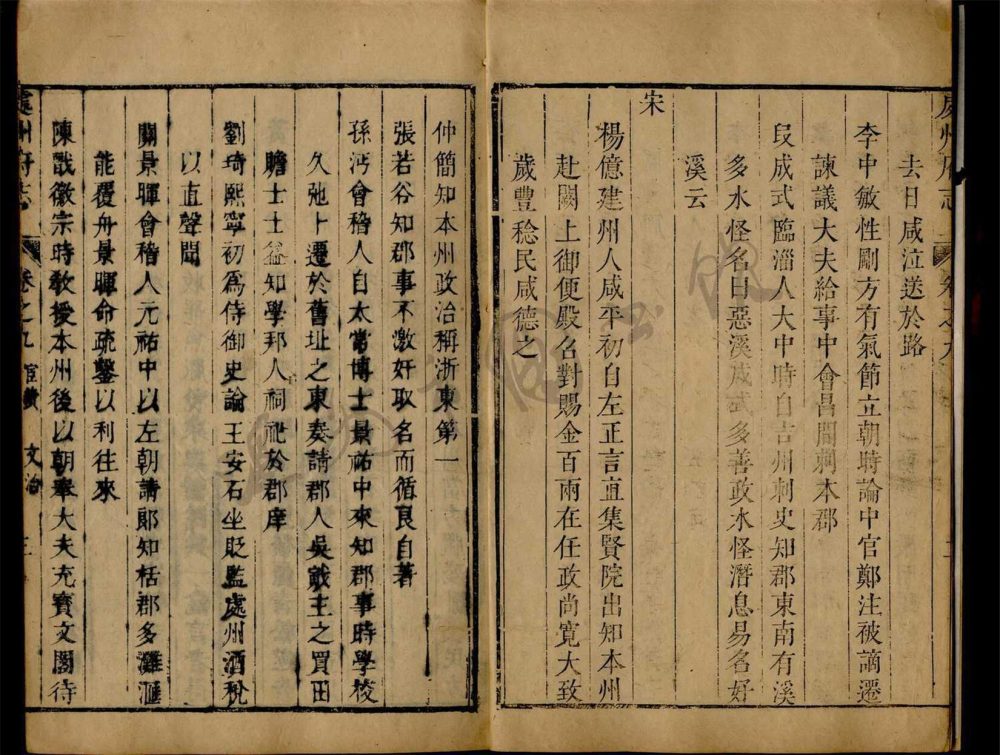 去日咸泣送於路
李中敏性剛方有氣節立朝時論中官鄭注被謫遷
諫議大夫給事中會昌間刺本郡
段成式臨淄人大中時自吉州刺史知郡東南有溪
多水怪名曰惡溪成式多善政水怪潛息易名好
溪云
宋
楊億建州人咸平初自左正言直集賢院出知本州
赴闕上御便殿名對賜金百兩在任政尚寬大致
歲豐稔民咸德之
仲簡知本州政治稱浙東第一
張若谷知郡事不激奸取名而循良自著
孫沔會稽人自太常博士景祐中來知郡事時學校
久弛卜遷於舊址之東奏請郡人吳戩主之買田
贍士士益知學邦人祠祀於郡庠
劉琦熙寧初爲侍御史論王安石坐貶監處州酒稅
以直聲聞
關景暉會稽人元祐中以左朝請郎知栝郡多灘滙
能覆舟景暉命疏鑿以利往來
陳戩徽宗時教授本州後以朝奉大夫充寶文閣待
處州府志 卷之九 宦績 文治 三